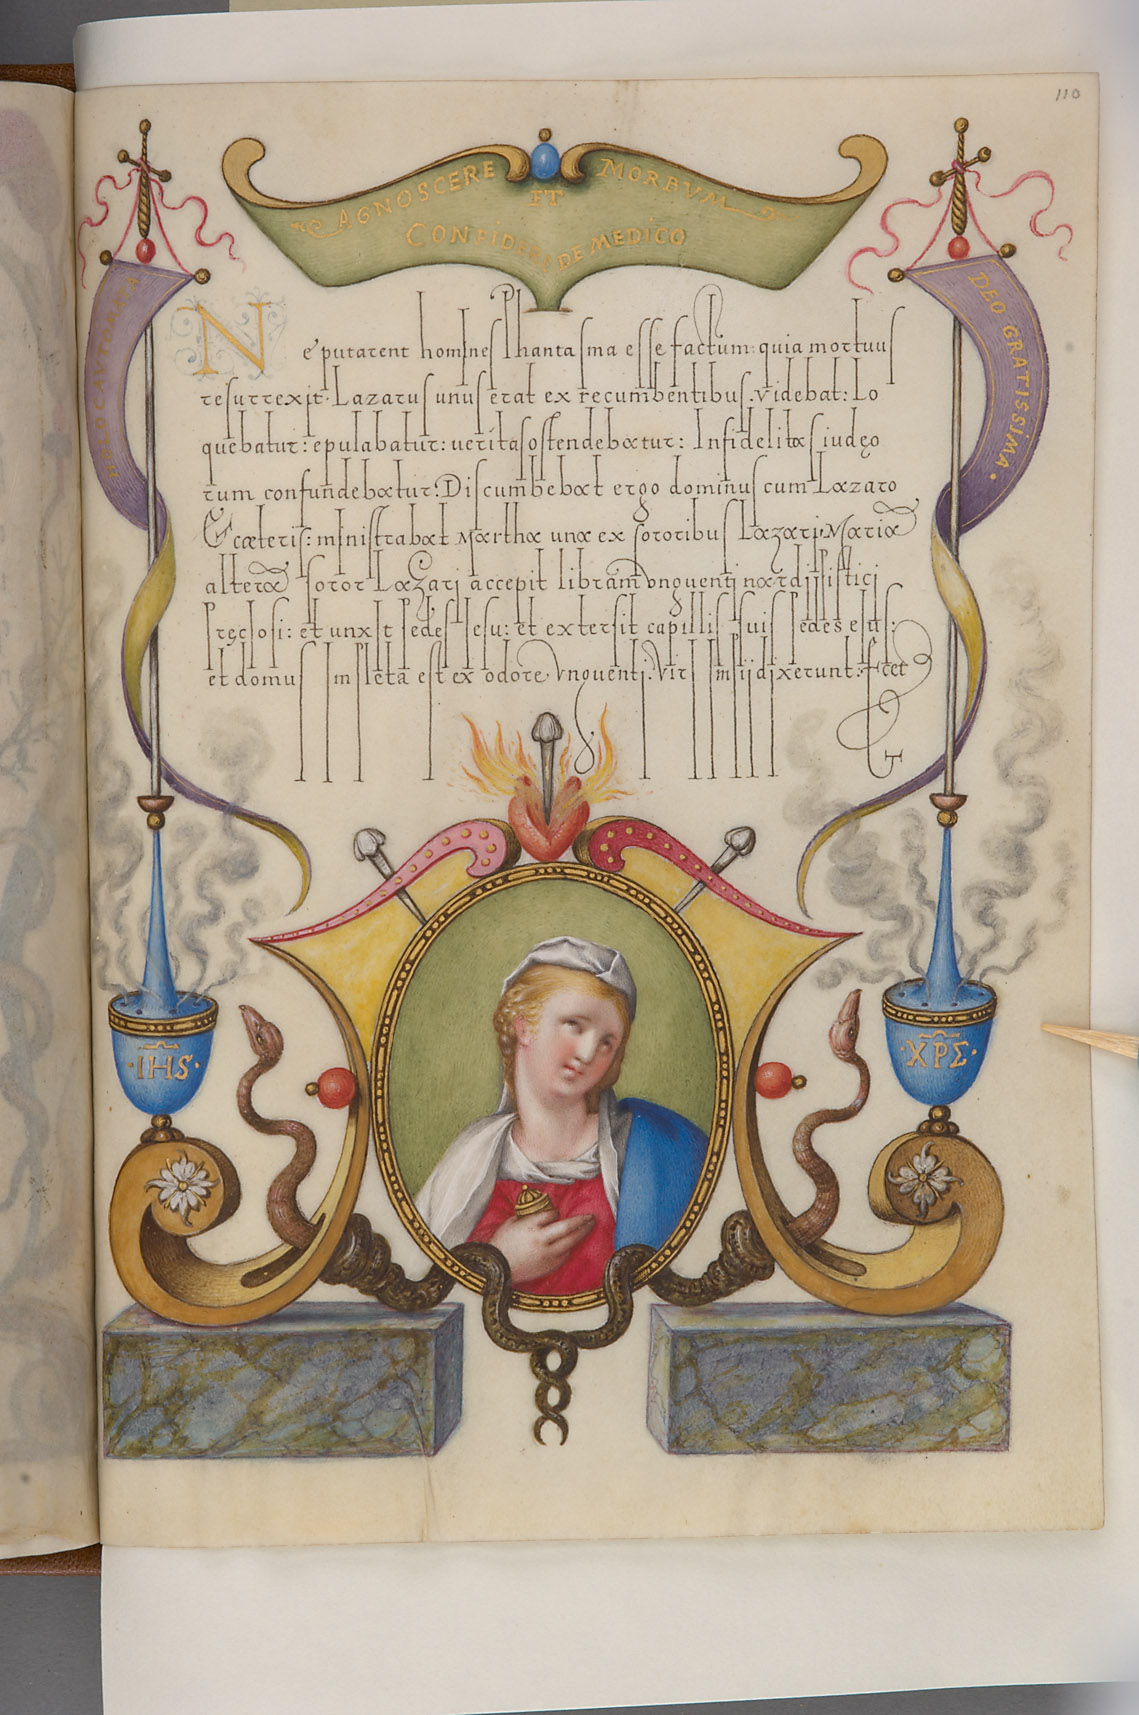 110
AGNOSCERE MORBVM
ET
CONFIDERE DE MEDICO
DEO GRATISSIMA
Ne putarent homines Phantasma esse factum: quia mortuus
resurrexit. Lazarus unus erat ex recumbentibus. Videbat: Lo
quebatur: epulabatur: ueritas ostendebatur: Infidelitas iudęo
rum confundebatur. Discumbebat ergo dominus cum Lazaro
Et cæteris: ministrabat Martha una ex sororibus Lazari. Maria
altera soror Lazari accepit libram vnguenti nardi pistici
Pręciosi: et unxit Pedes Iesu: et extersit capillis suis Pedes eius:
et domus impleta est ex odore vnguenti. Viri Impij dixerunt: Fret
IHS
XPΣ